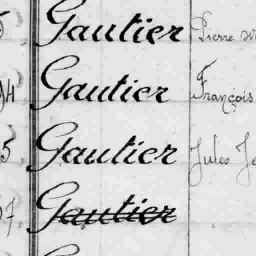 Gautier Pierre
Gautier François
Gautier Jules
Gautier